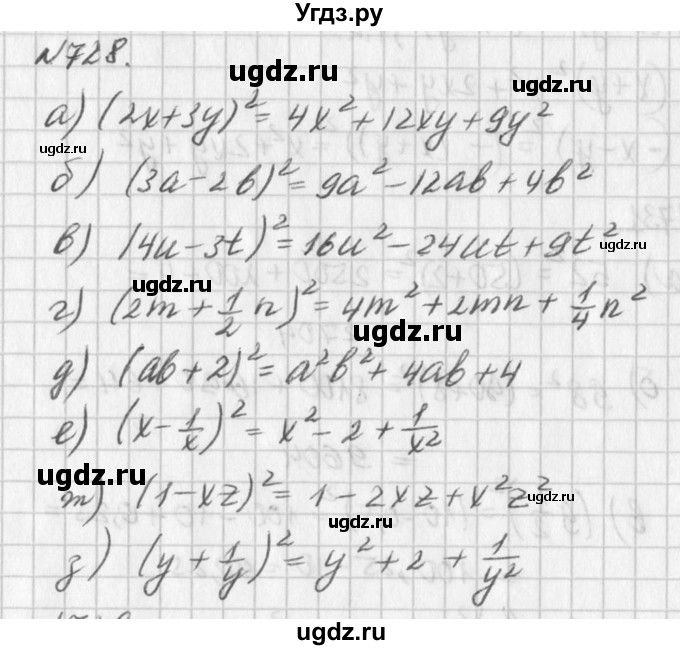 Угдз.ру
N728.
ugdz.ru
а) (2x+3y)² = 4x² + 12xy + 9y²
ugdz.ru
б) (3a-2b)² = 9a² - 12ab + 4b²
в) (4u-3t)² = 16u² - 24ut + 9t²
ugdz.ru
г) (2m + 1/2 n)² = 4m² + 2mn + 1/4 n²
ugdz.ru
ugdz.ru
д) (ab+2)² = a²b² + 4ab + 4
е) (x - 1/x)² = x² - 2 + 1/x²
ugdz.ru
ж) (1-xz)² = 1 - 2xz + x²z²
ugdz.ru
ugdz.ru
з) (y + 1/y)² = y² + 2 + 1/y²
ugdz.ru
ugdz.ru